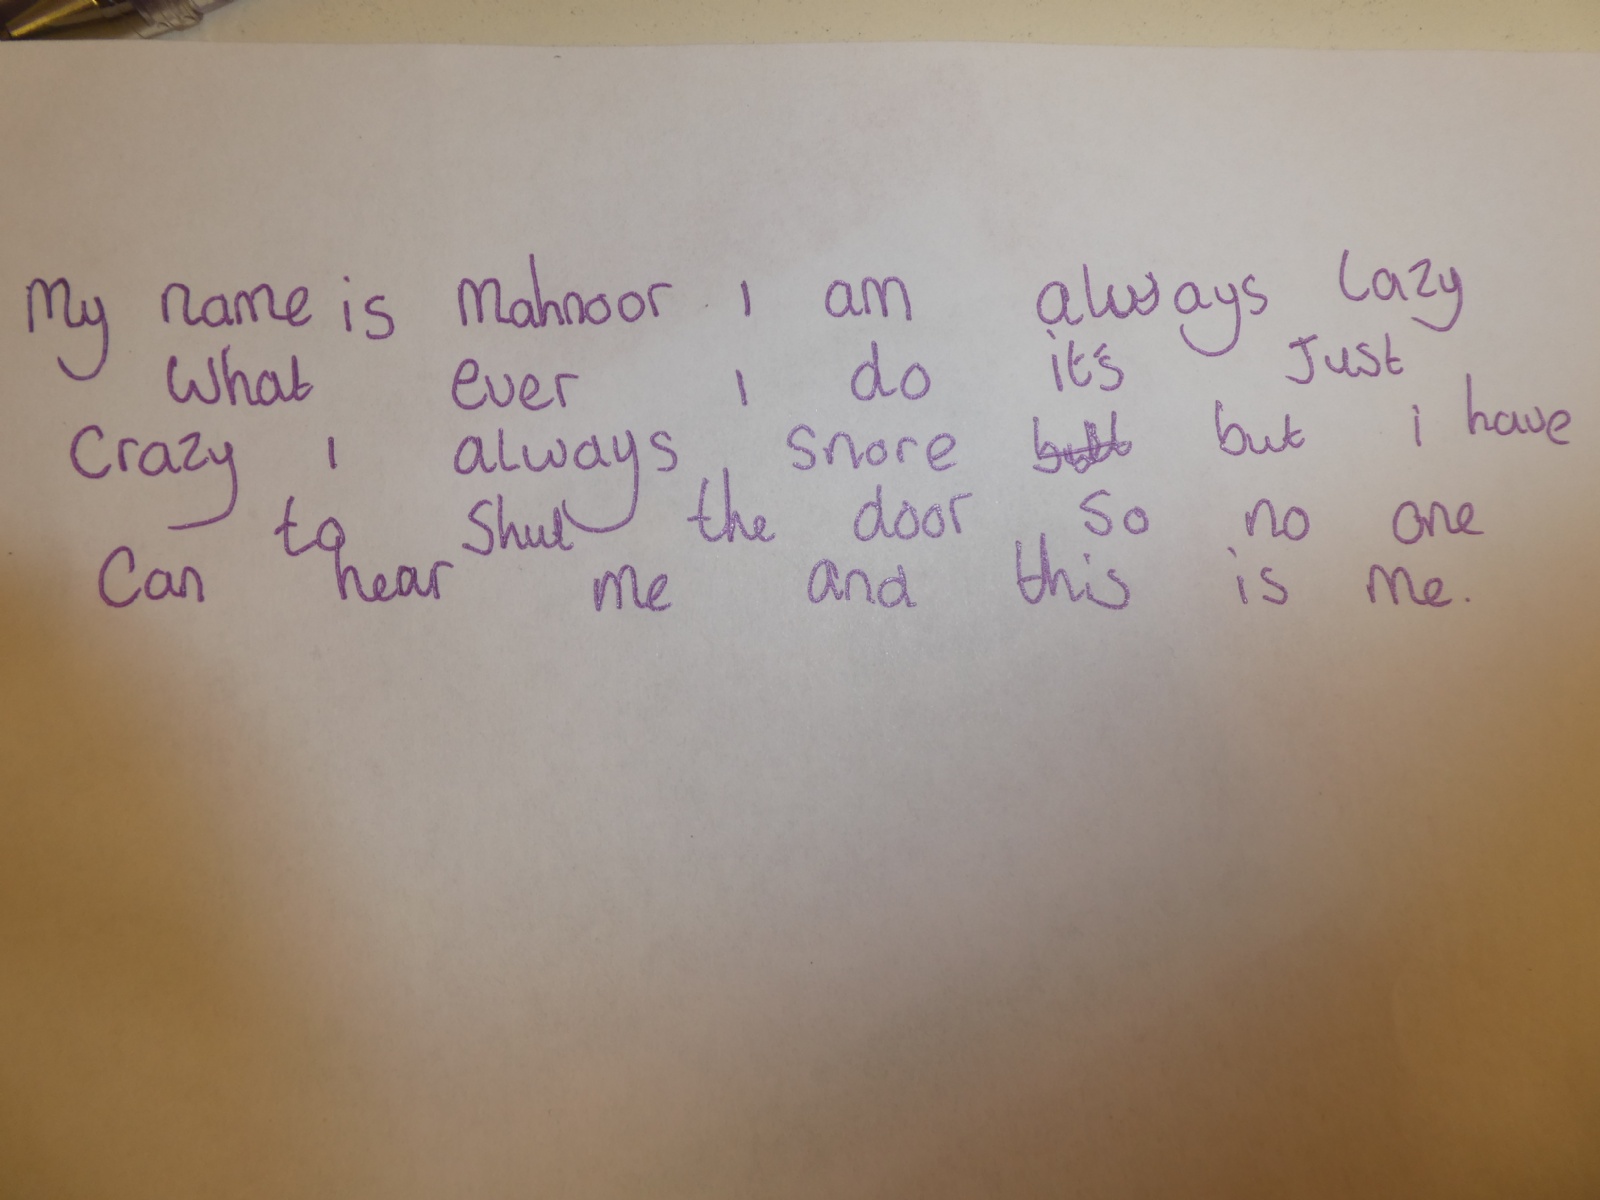 My name is Mahnoor I am always lazy
What ever I do it's Just
Crazy I always snore but i have
to Shut the door So no one
Can hear me and this is me.